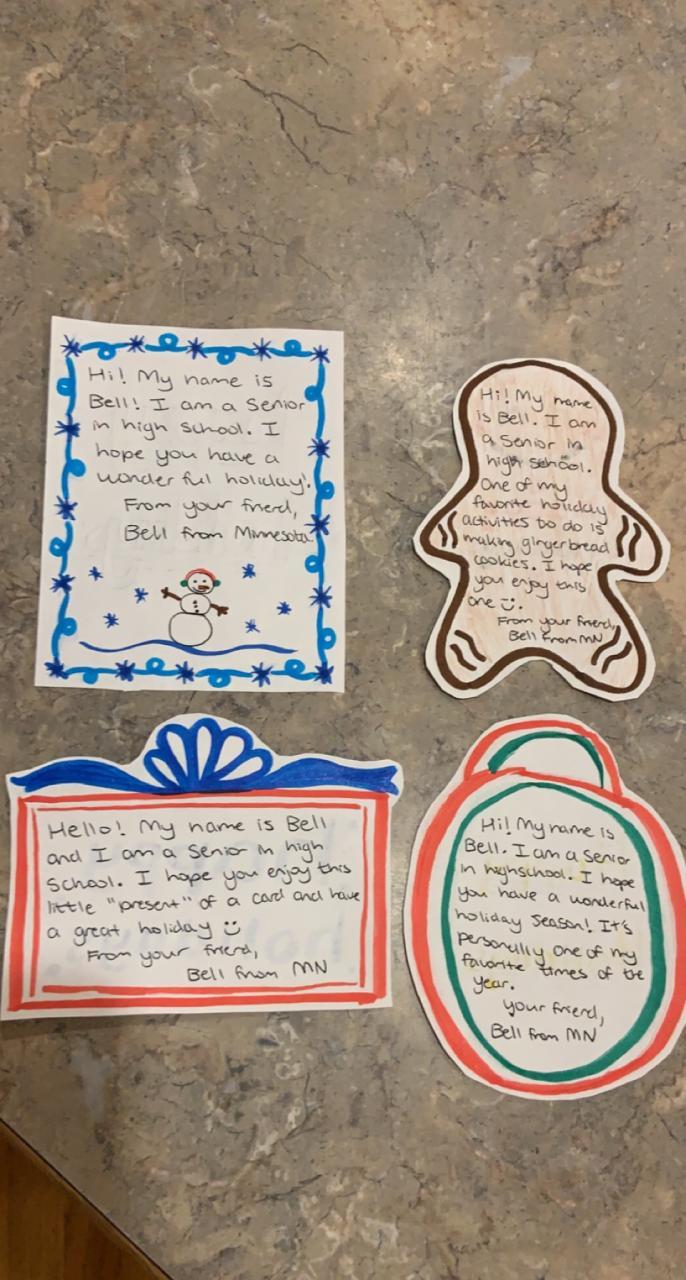 Hi! My name is
Bell! I am a Senior
in high school. I
hope you have a
wonderful holiday!
From your friend,
Bell from Minnesota
Hi! My name
is Bell. I am
a Senior in
high school.
One of my
favorite holiday
activities to do is
making gingerbread
cookies. I hope
you enjoy this
one :).
From your friend,
Bell from MN
Hello! My name is Bell
and I am a Senior in high
School. I hope you enjoy this
little "present" of a card and have
a great holiday :)
From your friend,
Bell from MN
Hi! My name is
Bell. I am a Senior
in highschool. I hope
you have a wonderful
holiday season! It's
personally one of my
favorite times of the
year.
your friend,
Bell from MN